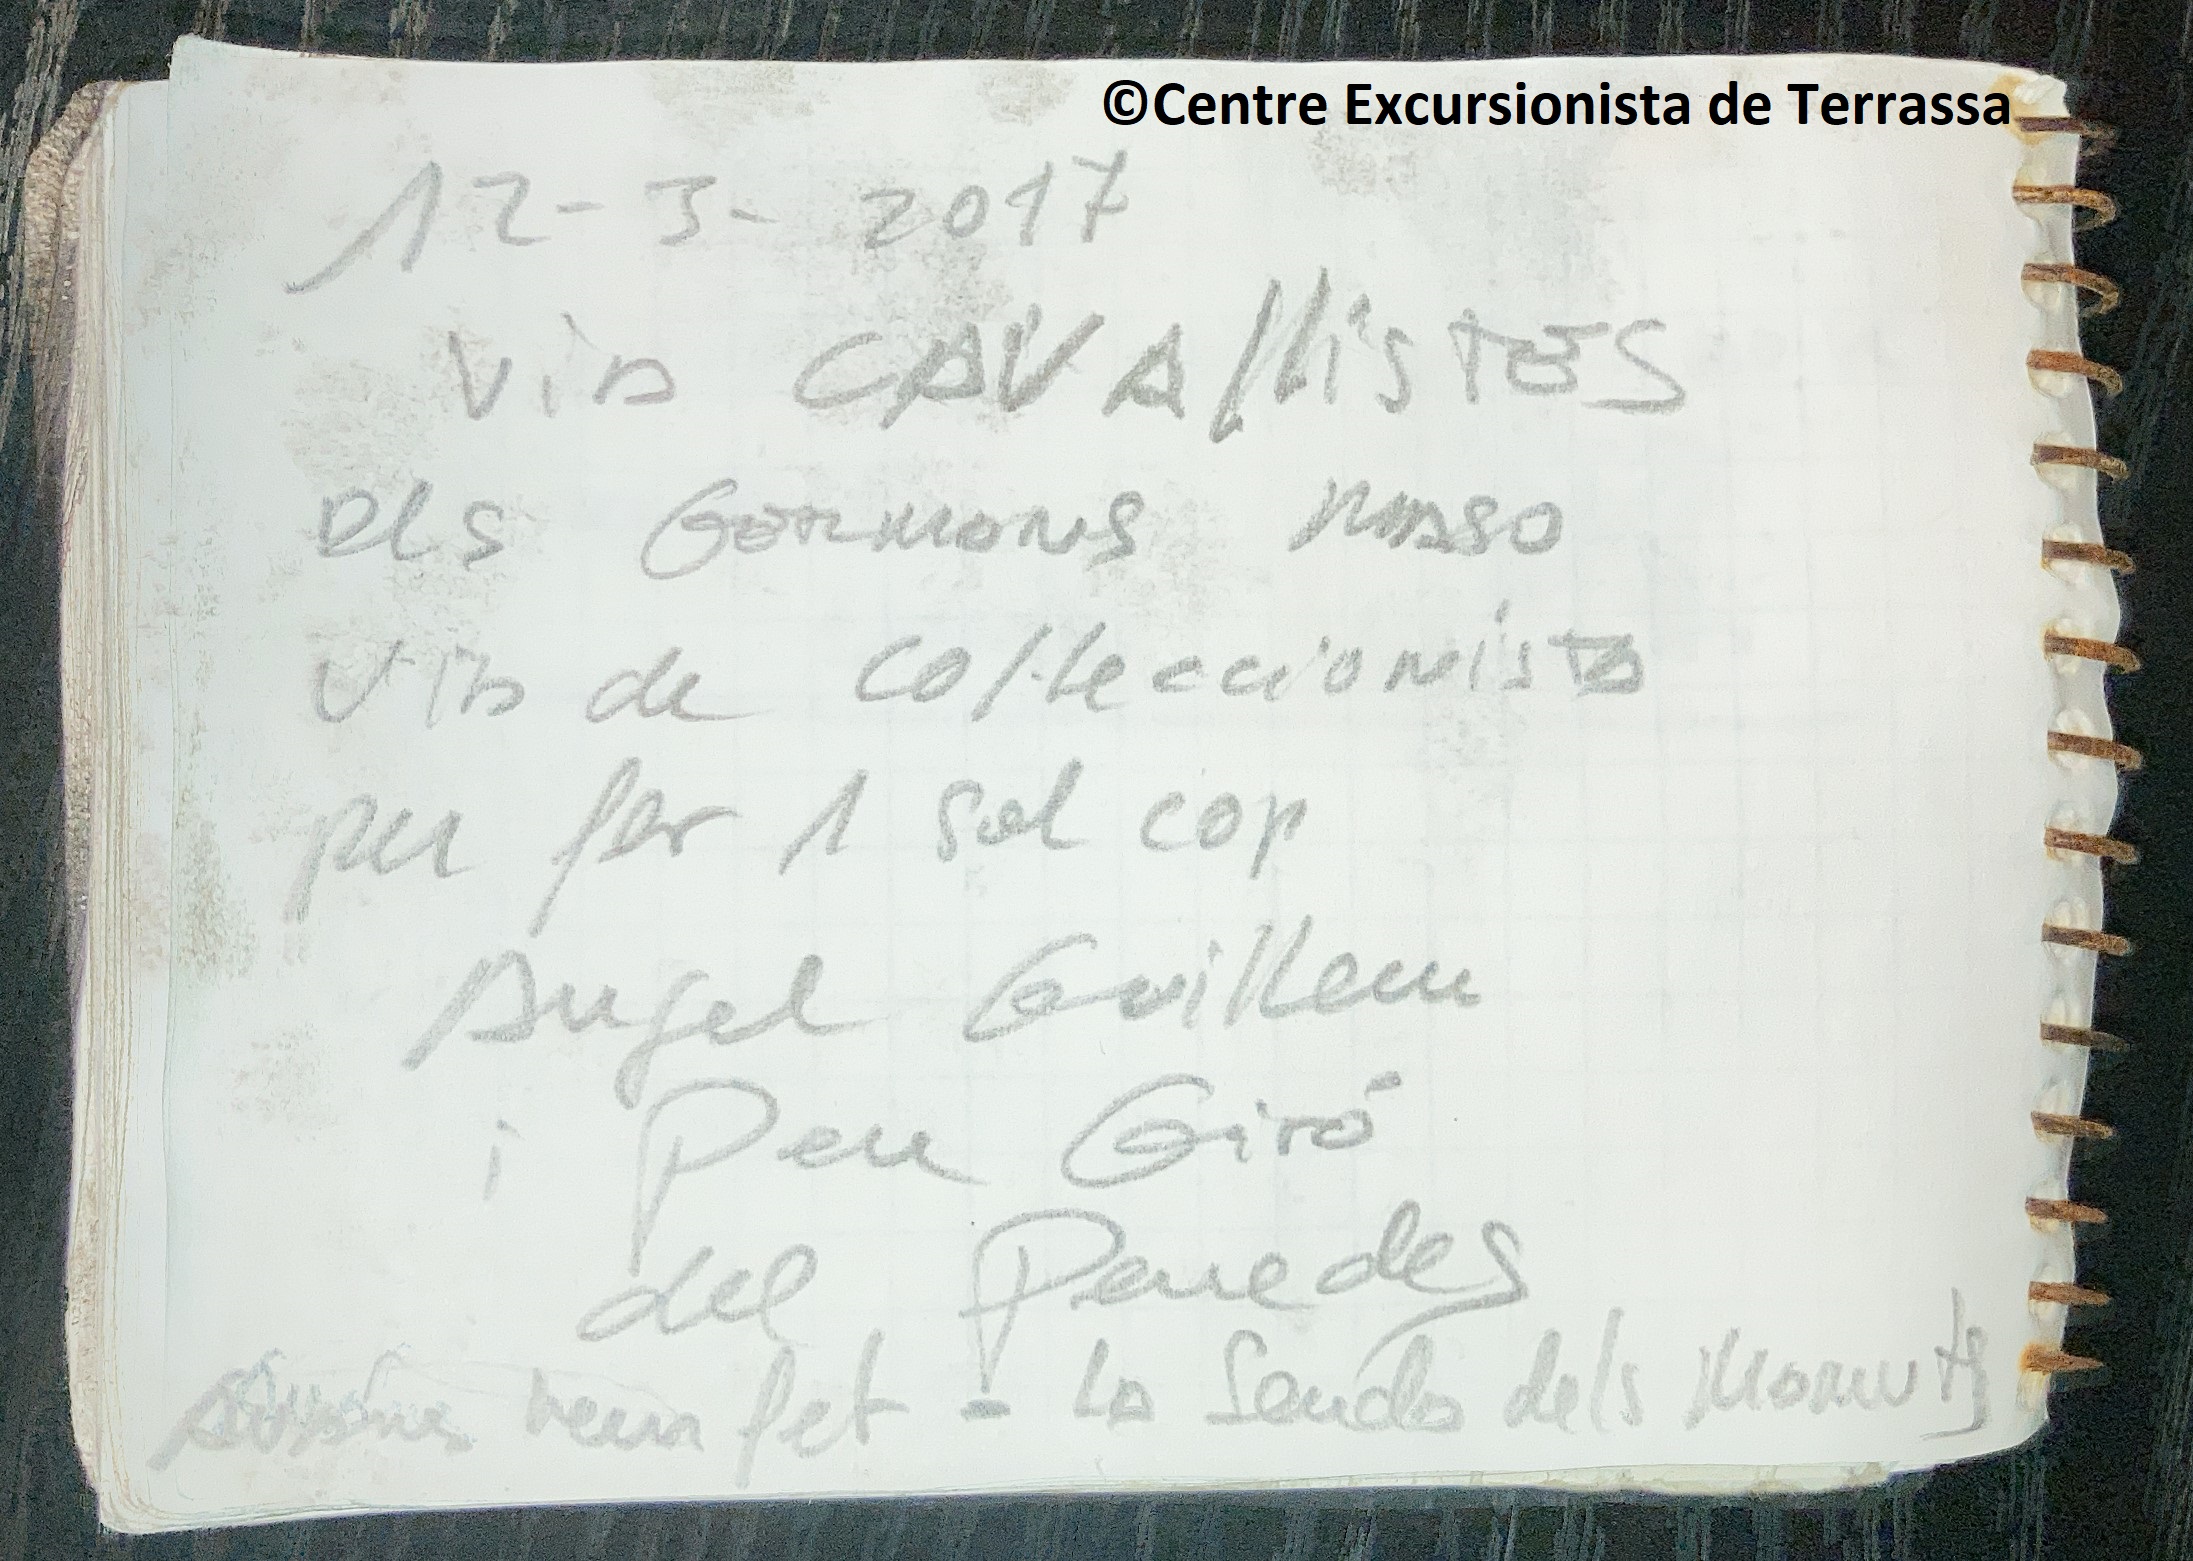 ©Centre Excursionista de Terrassa
12-3-2017
VIA CAVAllISTES
Dels GERMONS MASO
VIA de Col·leccionista
per fer 1 sol cop
Angel Guillem
i Pere Giró
del Penedes
hem fet - La Senda dels Mamuts